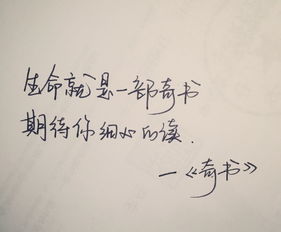 生命就是一部奇书
期待你细心的读.
—《奇书》